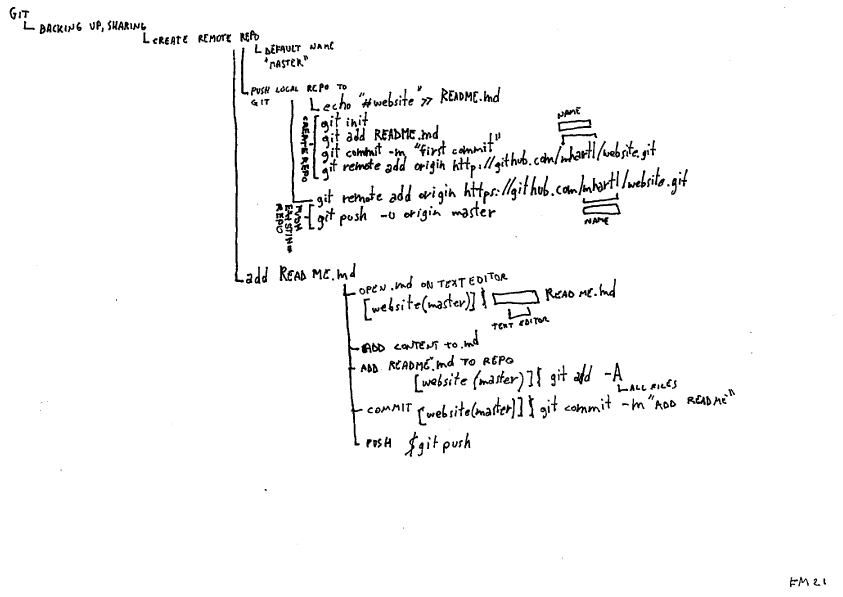 GIT
BACKING UP, SHARING
CREATE REMOTE REPO
DEFAULT NAME
"MASTER"
PUSH LOCAL REPO TO
GIT
echo "#website" >> README.md
CREATE REPO
git init
git add README.md
git commit -m "first commit"
NAME
git remote add origin http://github.com/mhartl/website.git
git remote add origin https://github.com/mhartl/website.git
PUSH
EXISTING
REPO
git push -u origin master
NAME
add README.md
OPEN .md ON TEXT EDITOR
[website(master)] $ README.md
TEXT EDITOR
ADD CONTENT TO .md
ADD README.md TO REPO
[website (master)] $ git add -A
ALL FILES
COMMIT [website(master)] $ git commit -m "ADD README"
PUSH $ git push
EM21